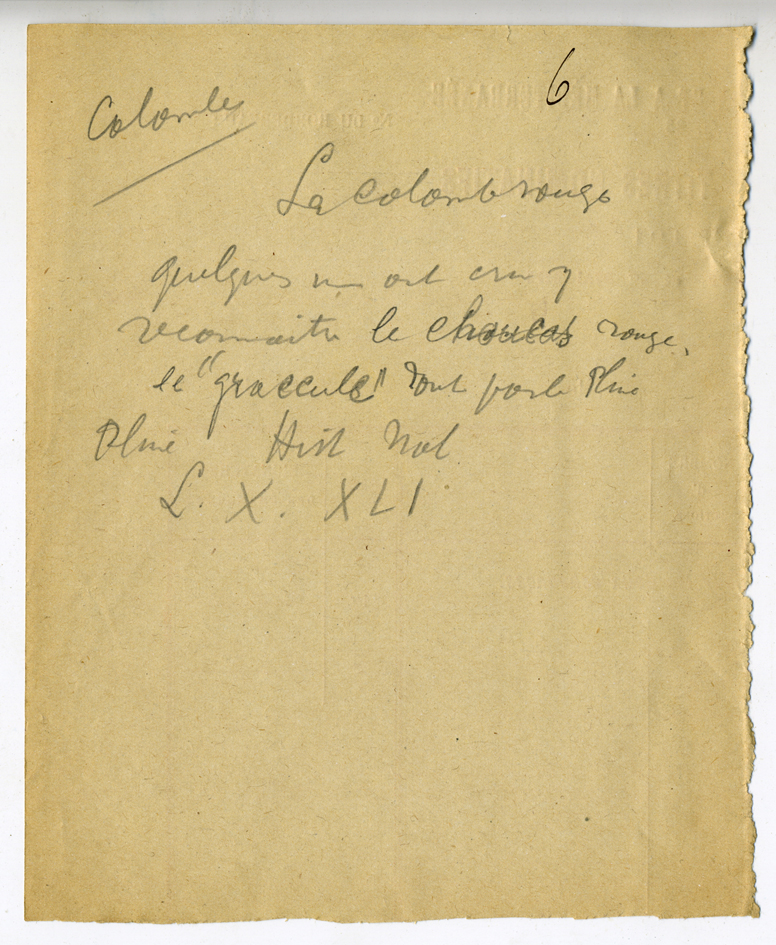 6
Colombe
La colombe rouge
quelques uns ont cru y
reconnaitre le choucas rouge,
le "graccule" dont parle Pline
Pline Hist Nat
L. X. XLI.